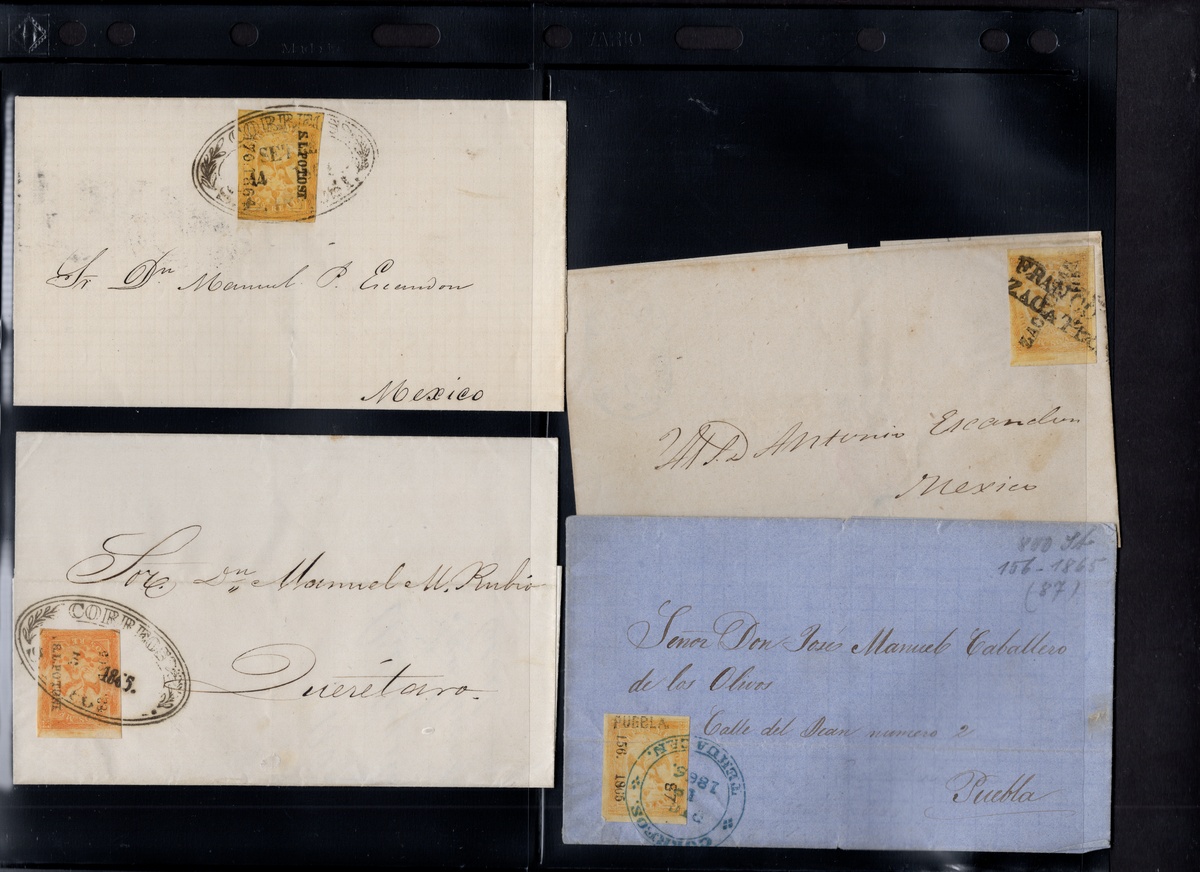 CORREOS
S.L.POTOSI
SET
14
76 1864
Sr Dn Manuel P. Escandon
Mexico
FRANCO
ZACAT
ZAC
S.D Antonio Escandon
Mexico
Sor. Dn Manuel M. Rubio
Querétaro.
CORREOS
1865.
S.L.POTOSI
800 
156-1865
(87)
Señor Don José Manuel Caballero
de los Olivos
Calle del Dean numero 2
Puebla
PUEBLA
156. 1865
87
CORREOS.
1865.